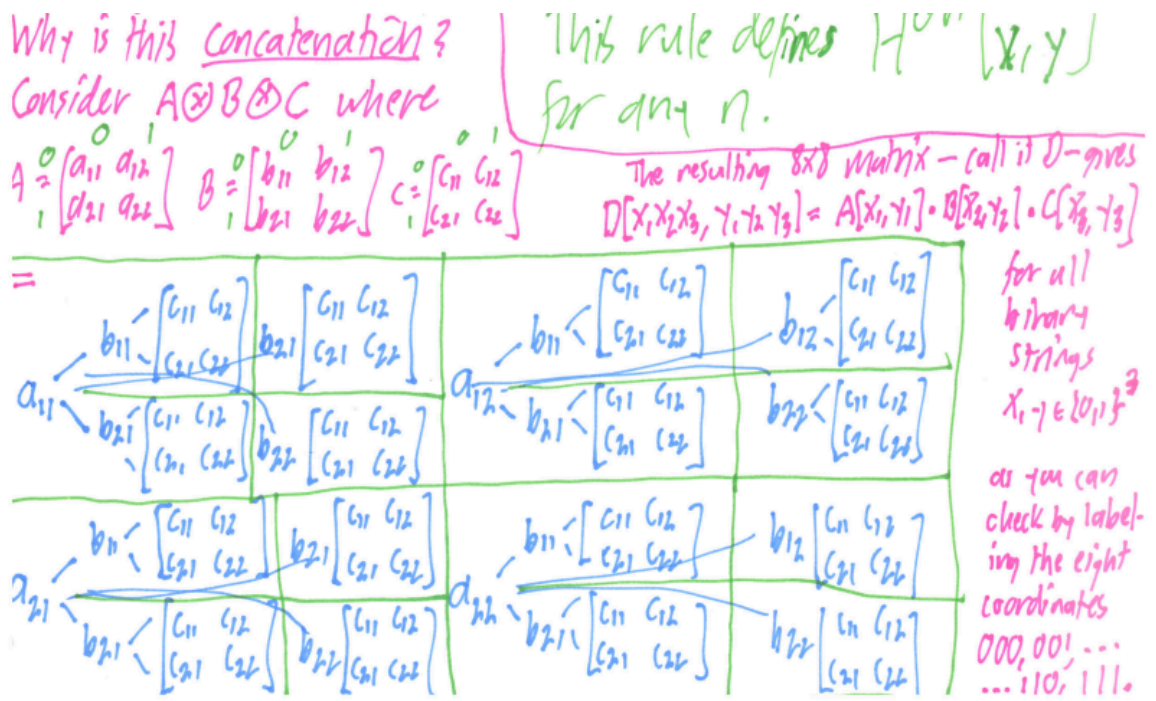 Why is this concatenation?
Consider A⊗B⊗C where
This rule defines H [x,y]
for any n.
0 1
0 1
0 1
A = [a11 a12
a21 a22]
0
1
B = [b11 b12
b21 b22]
0
1
C = [c11 c12
c21 c22]
0
1
The resulting 8x8 matrix – call it D – gives
D[x1x2x3, y1y2y3] = A[x1,y1]·B[x2,y2]·C[x3,y3]
for all
binary
strings
x,y ∈ {0,1}^3
as you can
check by label-
ing the eight
coordinates
000,001 ...
...110, 111.
=
a11 b11 [c11 c12
c21 c22]
b21 [c11 c12
c21 c22]
b21 [c11 c12
c21 c22]
b22 [c11 c12
c21 c22]
a12 b11 [c11 c12
c21 c22]
b12 [c11 c12
c21 c22]
b21 [c11 c12
c21 c22]
b22 [c11 c12
c21 c22]
a21 b11 [c11 c12
c21 c22]
b21 [c11 c12
c21 c22]
b21 [c11 c12
c21 c22]
b22 [c11 c12
c21 c22]
a22 b11 [c11 c12
c21 c22]
b12 [c11 c12
c21 c22]
b21 [c11 c12
c21 c22]
b22 [c11 c12
c21 c22]